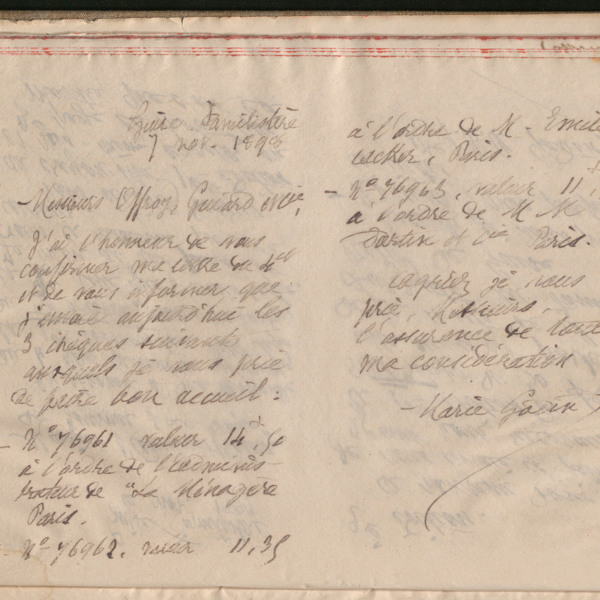 Guise Familistère
7 nov. 1898
Messieurs Offroy, Guiard et Cie,
J'ai l'honneur de vous
confirmer ma lettre du 4 ct
et de vous informer que
j'émets aujourd'hui les
3 chèques suivants
auxquels je vous prie
de faire bon accueil :
- N° 76961 valeur 14f,50
à l'ordre de l'Adminis-
trateur de "La Ménagère
Paris.
- N° 76962. valeur 11,35
à l'ordre de M. Emile
Paris.
- N° 76963, valeur 11f
à l'ordre de M M
et Cie Paris.
Agréez je vous
prie, Messieurs,
l'assurance de toute
ma considération
Marie Godin